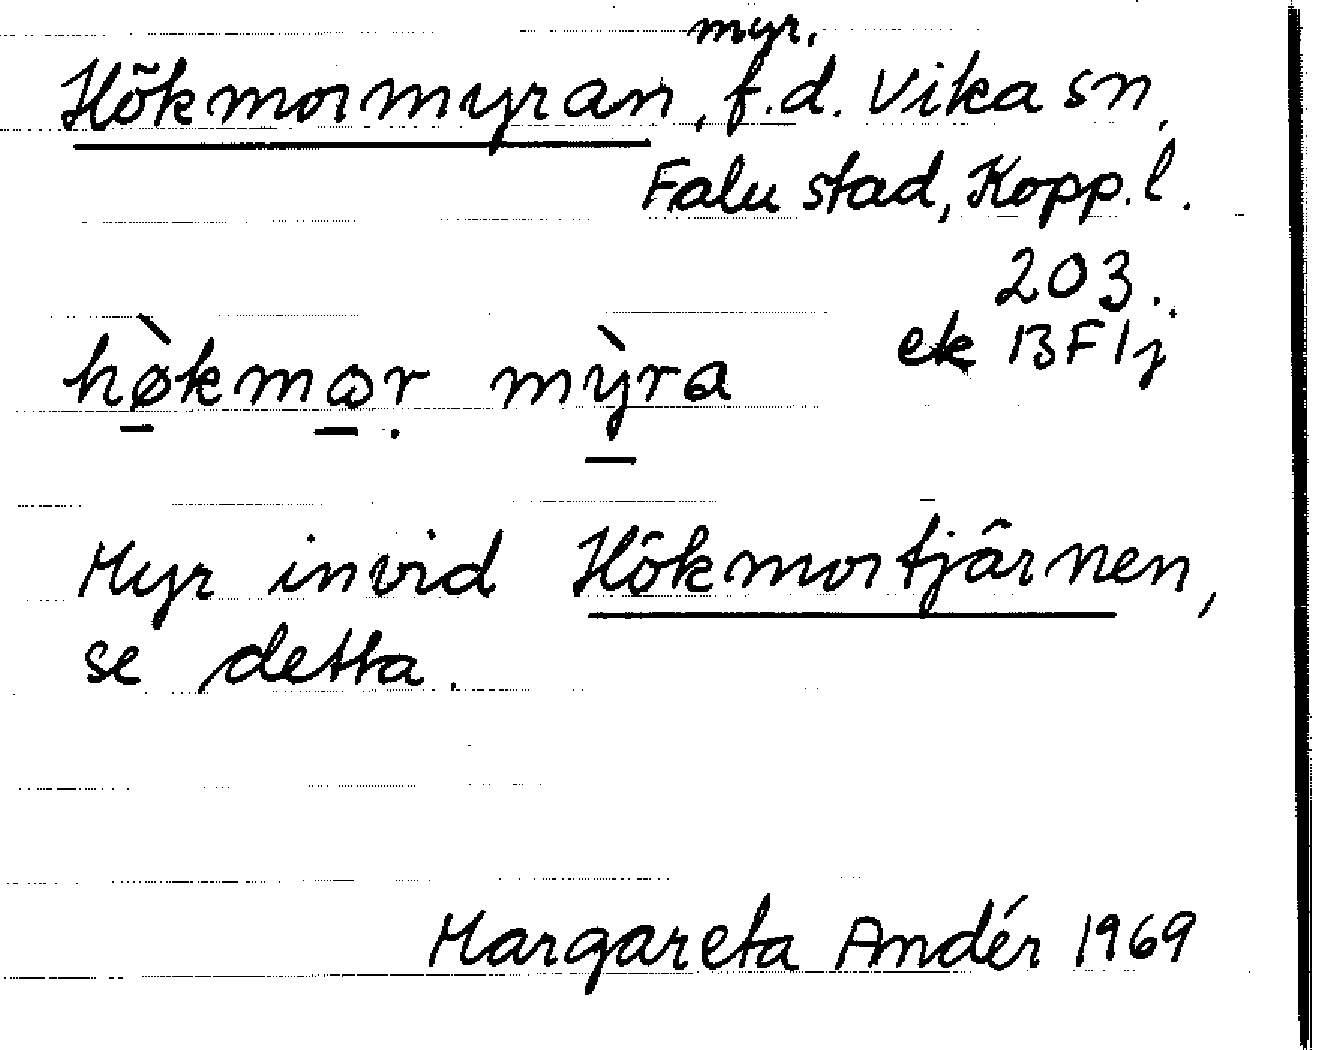 myr.
Hökmormyran, f.d. Vika sn,
Falu stad, Kopp. l.
203.
ek 13 F 1j
hø̀kmɷr mỳra
Myr invid Hökmortjärnen,
se detta.
Margareta Andér 1969